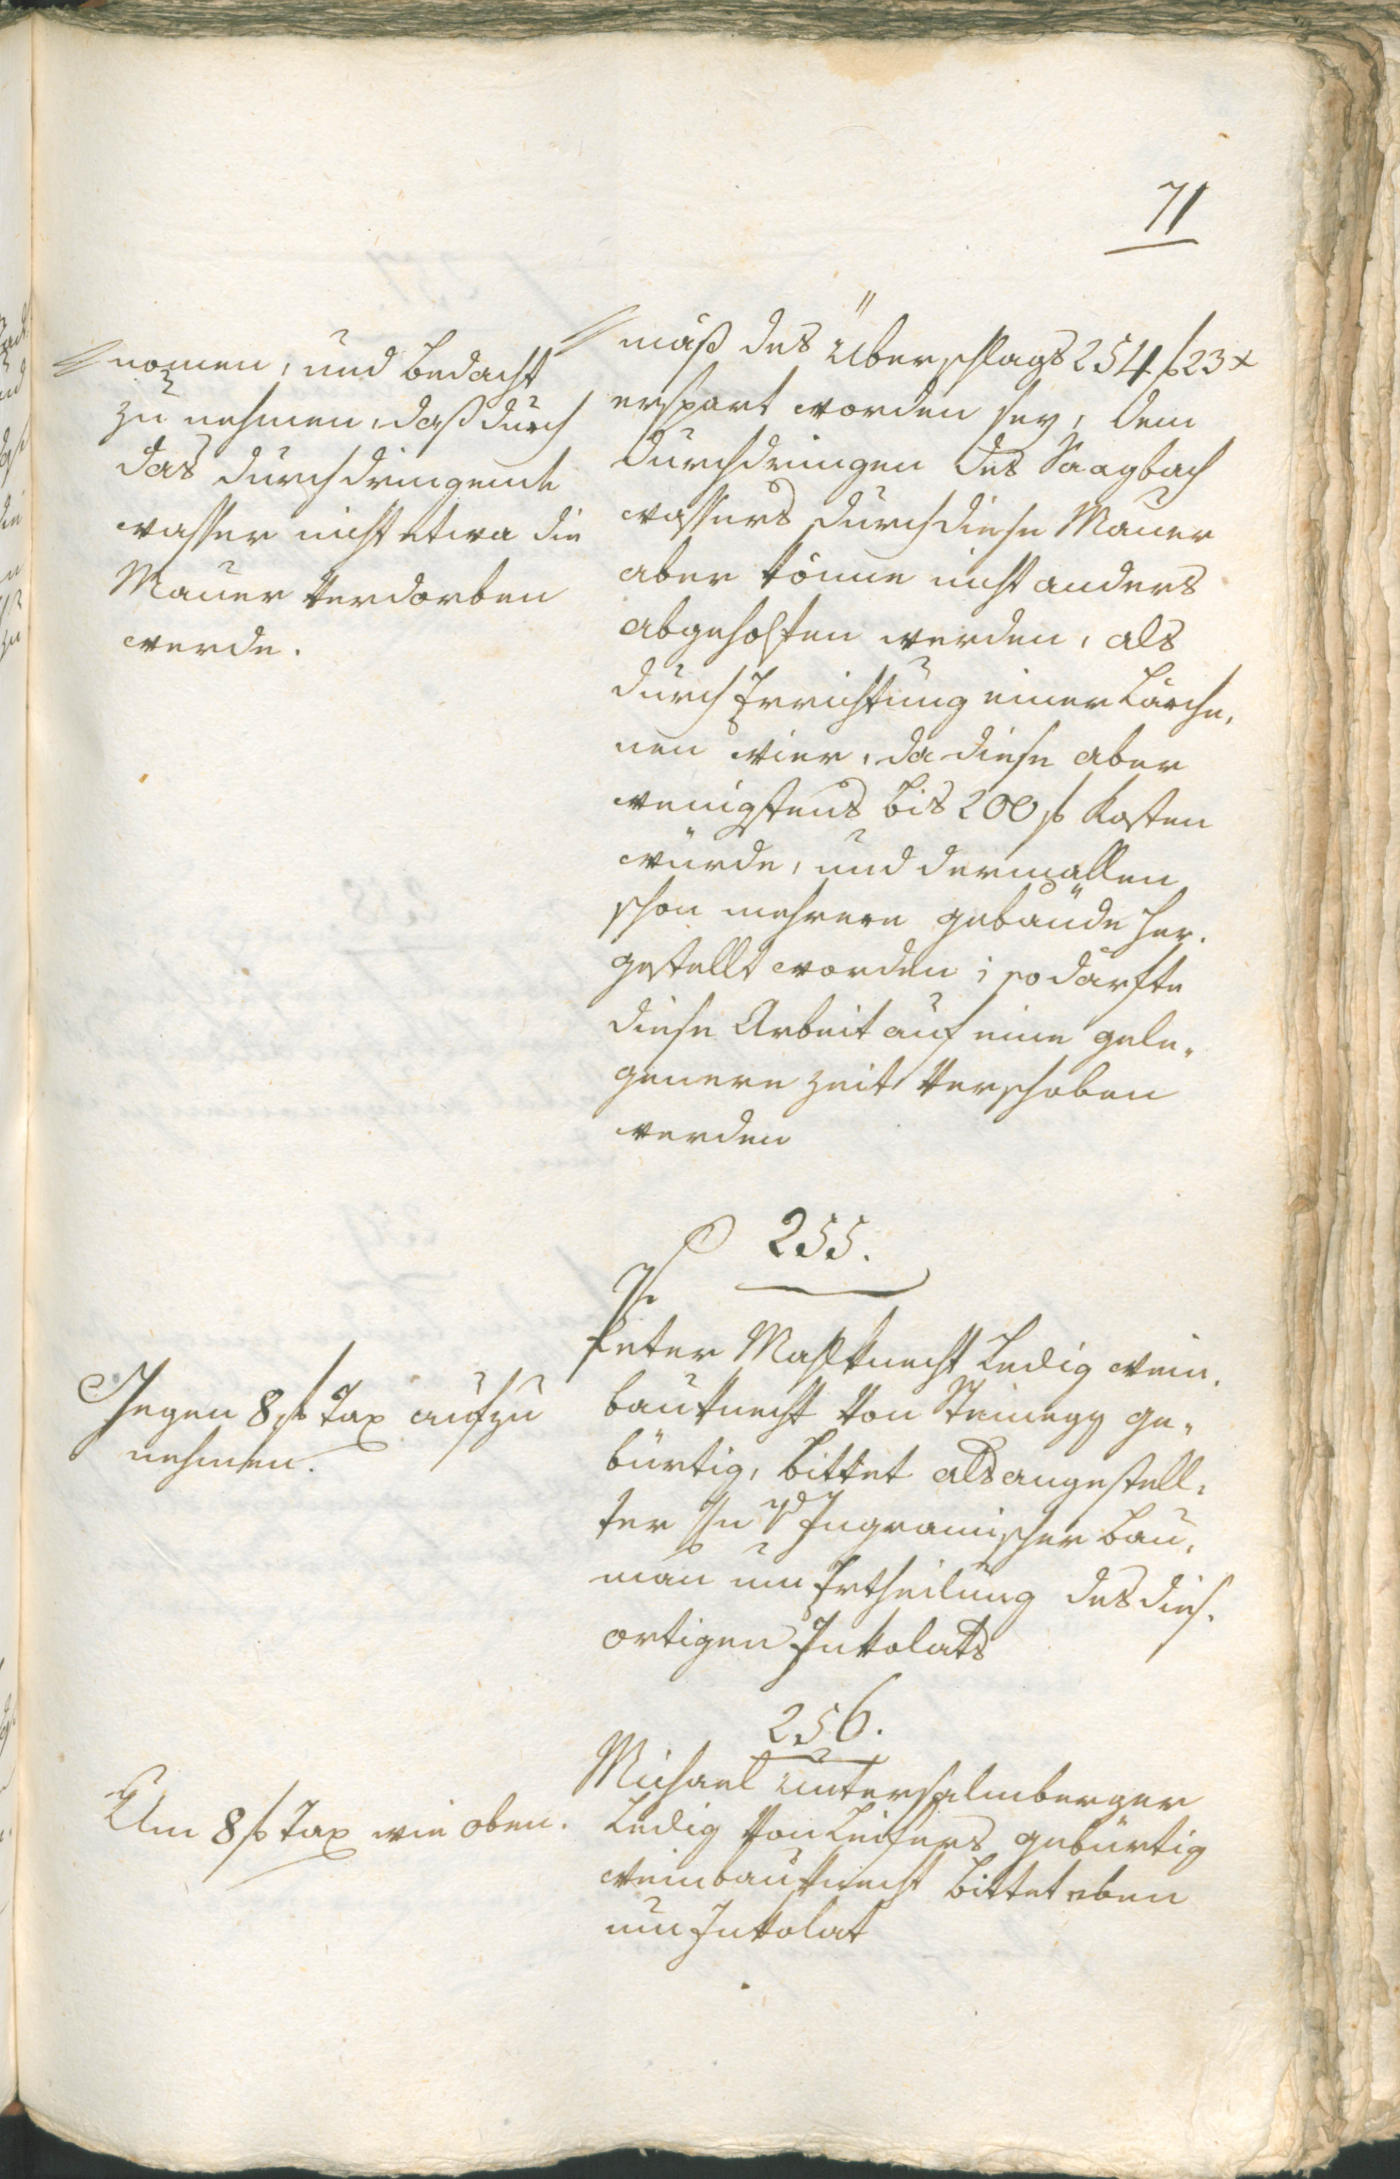 71
nomen, und bedacht
zu nehmen, daß durch
das durchdringente
wasser nicht etwa die
Mauer verdorben
werde.
mäß des Überschlags 254 f 23 x
erspart worden sey, dem
durchdringen des Saagbach
wassers durch diese Mauer
aber könne nicht anders
abgeholfen werden, als
durch Errichtung einer Lärche,
nen wier, da diese aber
wenigstens bis 200 f kosten
würde, und dermallen
schon mehrere gebäude her.
gestellt worden; so därfte
diese Arbeit auf eine gele„
genere zeit verschoben
werden
255.
Gegen 8 f Tax aufzu
nehmen.
Peter Maßknecht Ledig wein,
bauknecht von Steinegg ge„
bürtig, bittet als angestell,
ter Ingramischer bau,
man um Ertheilung des dies.
ortigen Inkolats
256.
Um 8 f Tax wie oben.
Michael Untersalmberger
Ledig von Leifers gebürtig
weinbauknecht bittet eben
um Inkolat